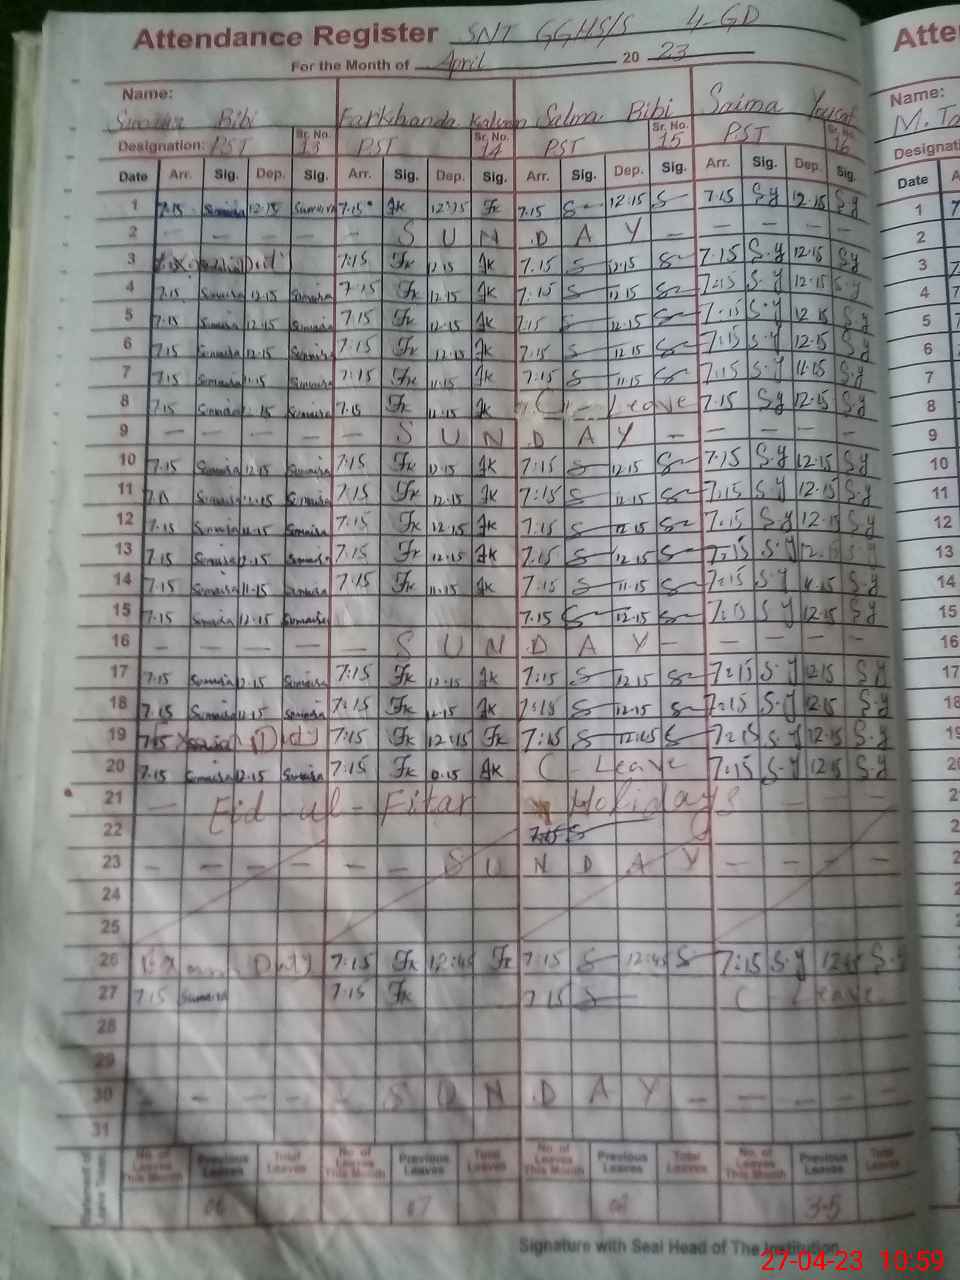 Attendance Register SNT GGHS/S 4-GD
For the Month of April 20 23
Name:
Sumaira Bibi Farkhanda Salma Bibi Saima Yousaf
Designation: PST Sr. No. 13 PST Sr. No. 14 PST Sr. No. 15 PST Sr. No. 16
Date Arr. Sig. Dep. Sig. Arr. Sig. Dep. Sig. Arr. Sig. Dep. Sig. Arr. Sig. Dep. Sig.
1 7.15 Sumaira 12.15 Sumaira 7.15 Fk 12.15 Fk 7.15 S 12.15 S 7.15 S.y 12.15 S.y
2 — — — — — S U N D A Y — — — — —
3 7:15 Fk 12.15 Fk 7.15 S 12.15 S 7.15 S.y 12.15 S.y
4 7.15 Sumaira 12.15 Sumaira 7.15 Fk 12.15 Fk 7:15 S 12.15 S 7:15 S.y 12.15 S.y
5 7.15 Sumaira 12.15 Sumaira 7.15 Fk 12.15 Fk 7.15 S 12.15 S 7.15 S.y 12.15 S.y
6 7.15 Sumaira 12.15 Sumaira 7.15 Fk 12.15 Fk 7.15 S 12.15 S 7:15 S.y 12.15 S.y
7 7.15 Sumaira 11.15 Sumaira 7:15 Fk 11.15 Fk 7:15 S 11.15 S 7:15 S.y 11.15 S.y
8 7.15 Sumaira 12.15 Sumaira 7.15 Fk 12.15 Fk C - Leave 7.15 S.y 12.15 S.y
9 — — — — — S U N D A Y — — — — —
10 7.15 Sumaira 12.15 Sumaira 7:15 Fk 12.15 Fk 7:15 S 12.15 S 7:15 S.y 12.15 S.y
11 Sumaira 12.15 Sumaira 7:15 Fk 12.15 Fk 7:15 S 12.15 S 7:15 S.y 12.15 S.y
12 7.15 Sumaira 12.15 Sumaira 7:15 Fk 12.15 Fk 7:15 S 12.15 S 7.15 S.y 12.15 S.y
13 7.15 Sumaira 12.15 Sumaira 7:15 Fk 12.15 Fk 7.15 S 12.15 S 7:15 S.y S.y
14 7.15 Sumaira 11.15 Sumaira 7:15 Fk 11.15 Fk 7.15 S 11.15 S 7:15 S.y 11.15 S.y
15 7.15 Sumaira 12.15 Sumaira 7.15 S 12.15 S S.y 12.15 S.y
16 — — — — — S U N D A Y — — — — —
17 7.15 Sumaira 12.15 Sumaira 7:15 Fk 12.15 Fk 7:15 S 12.15 S 7:15 S.y 12.15 S.y
18 7.15 Sumaira 12.15 Sumaira 7:15 Fk 12.15 Fk 7:15 S 12.15 S 7:15 S.y 12.15 S.y
19 Duty 7:15 Fk 12:15 Fk 7:15 S 12:15 S 7:15 S.y 12.15 S.y
20 7.15 Sumaira 12.15 Sumaira 7:15 Fk 12.15 Fk C - Leave 7:15 S.y 12.15 S.y
21 — Eid - ul - Fitar Holidays — — —
22
23 — — — — — — S U N D A Y — — — —
24
25
26 Exam Duty 7:15 Fk 12:45 Fk 7:15 S 12:45 S 7:15 S.y 12:45 S.y
27 7.15 Sumaira 7:15 Fk 7.15 S C - Leave
28
29
30 — — — — — S U N D A Y — — — — —
31
No. of Leaves This Month Previous Leaves Total Leaves No. of Leaves This Month Previous Leaves Total Leaves No. of Leaves This Month Previous Leaves Total Leaves No. of Leaves This Month Previous Leaves Total Leaves
06 07 3-5
Signature with Seal Head of The Institution
27-04-23 10:59
Atte
Name:
M. Ta
Designati
Date A
1 7
2
3
4
5
6
7
8
9
10
11
12
13
14
15
16
17
18
19